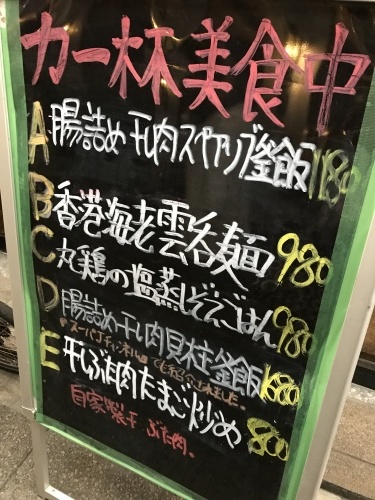 カー杯美食中
A 腸詰め干し肉スペアリブ釜飯 1180
B 香港海老雲呑麺 980
C 丸鶏の塩蒸しぞえごはん 980
D 腸詰め干し肉貝柱釜飯 1680
スーパーJチャンネル
E 干しぶた肉たまご炒め 800
自家製干しぶた肉。